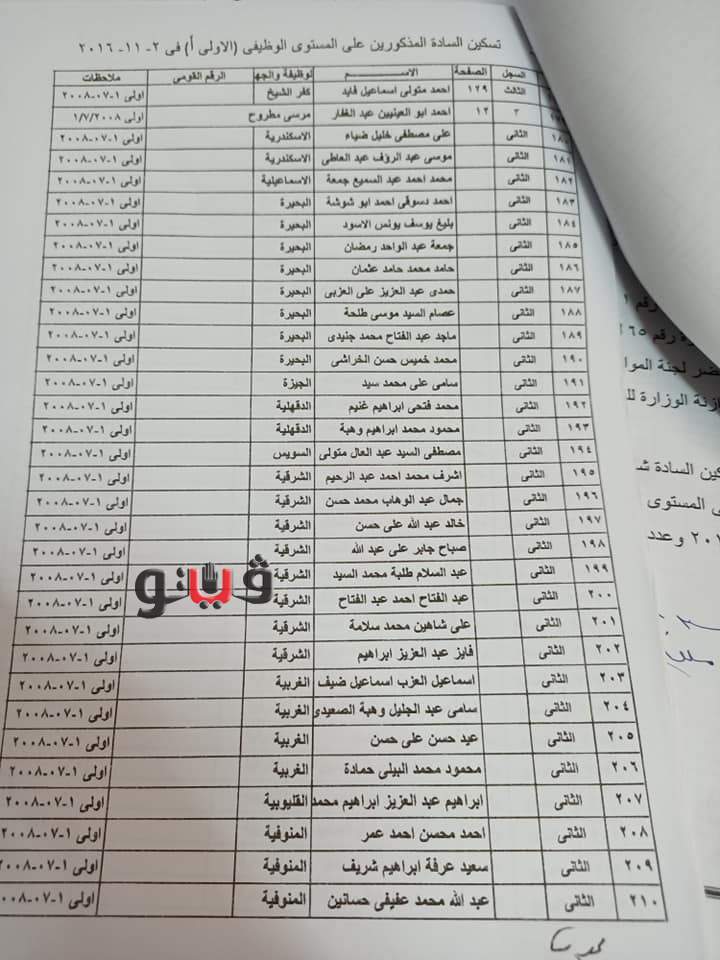 تسكين السادة المذكورين على المستوى الوظيفى (الاولى أ) فى ٢-١١-٢٠١٦
السجل الصفحة الاســـــم لوظيفة والجه الرقم القومى ملاحظات
الثالث ١٢٩ احمد متولى اسماعيل فايد كفر الشيخ اولى ١-٠٧-٢٠٠٨
٣ ١٢ احمد ابو العينيين عبد الغفار مرسى مطروح اولى ١/٧/٢٠٠٨
١٨٠ الثانى على مصطفى خليل ضياء الاسكندرية اولى ١-٠٧-٢٠٠٨
١٨١ الثانى موسى عبد الرؤف عبد العاطى الاسكندرية اولى ١-٠٧-٢٠٠٨
١٨٢ الثانى محمد احمد عبد السميع جمعة الاسماعيلية اولى ١-٠٧-٢٠٠٨
١٨٣ الثانى احمد دسوقى احمد ابو شوشة البحيرة اولى ١-٠٧-٢٠٠٨
١٨٤ الثانى بليغ يوسف يونس الاسود البحيرة اولى ١-٠٧-٢٠٠٨
١٨٥ الثانى جمعة عبد الواحد رمضان البحيرة اولى ١-٠٧-٢٠٠٨
١٨٦ الثانى حامد محمد حامد عثمان البحيرة اولى ١-٠٧-٢٠٠٨
١٨٧ الثانى حمدى عبد العزيز على العزبى البحيرة اولى ١-٠٧-٢٠٠٨
١٨٨ الثانى عصام السيد موسى طلحة البحيرة اولى ١-٠٧-٢٠٠٨
١٨٩ الثانى ماجد عبد الفتاح محمد جنيدى البحيرة اولى ١-٠٧-٢٠٠٨
١٩٠ الثانى محمد خميس حسن الخراشى البحيرة اولى ١-٠٧-٢٠٠٨
١٩١ الثانى سامى على محمد سيد الجيزة اولى ١-٠٧-٢٠٠٨
١٩٢ الثانى محمد فتحى ابراهيم غنيم الدقهلية اولى ١-٠٧-٢٠٠٨
١٩٣ الثانى محمود محمد ابراهيم وهبة الدقهلية اولى ١-٠٧-٢٠٠٨
١٩٤ الثانى مصطفى السيد عبد العال متولى السويس اولى ١-٠٧-٢٠٠٨
١٩٥ الثانى اشرف محمد احمد عبد الرحيم الشرقية اولى ١-٠٧-٢٠٠٨
١٩٦ الثانى جمال عبد الوهاب محمد حسن الشرقية اولى ١-٠٧-٢٠٠٨
١٩٧ الثانى خالد عبد الله على حسن الشرقية اولى ١-٠٧-٢٠٠٨
١٩٨ الثانى صباح جابر على عبد الله الشرقية اولى ١-٠٧-٢٠٠٨
١٩٩ الثانى عبد السلام طلبة محمد السيد الشرقية اولى ١-٠٧-٢٠٠٨
٢٠٠ الثانى عبد الفتاح احمد عبد الفتاح الشرقية اولى ١-٠٧-٢٠٠٨
٢٠١ الثانى على شاهين محمد سلامة الشرقية اولى ١-٠٧-٢٠٠٨
٢٠٢ الثانى فايز عبد العزيز ابراهيم الشرقية اولى ١-٠٧-٢٠٠٨
٢٠٣ الثانى اسماعيل العزب اسماعيل ضيف الغربية اولى ١-٠٧-٢٠٠٨
٢٠٤ الثانى سامى عبد الجليل وهبة الصعيدى الغربية اولى ١-٠٧-٢٠٠٨
٢٠٥ الثانى عيد حسن على حسن الغربية اولى ١-٠٧-٢٠٠٨
٢٠٦ الثانى محمود محمد البيلى حمادة الغربية اولى ١-٠٧-٢٠٠٨
٢٠٧ الثانى ابراهيم عبد العزيز ابراهيم محمد القليوبية اولى ١-٠٧-٢٠٠٨
٢٠٨ الثانى احمد محسن احمد عمر المنوفية اولى ١-٠٧-٢٠٠٨
٢٠٩ الثانى سعيد عرفة ابراهيم شريف المنوفية اولى ١-٠٧-٢٠٠٨
٢١٠ الثانى عبد الله محمد عفيفى حسانين المنوفية اولى ١-٠٧-٢٠٠٨
ڤيتو
رقم ٦٥
ضر لجنة الموا
زنة الوزارة لل
كين السادة ش
ى المستوى
٢٠١ وعدد